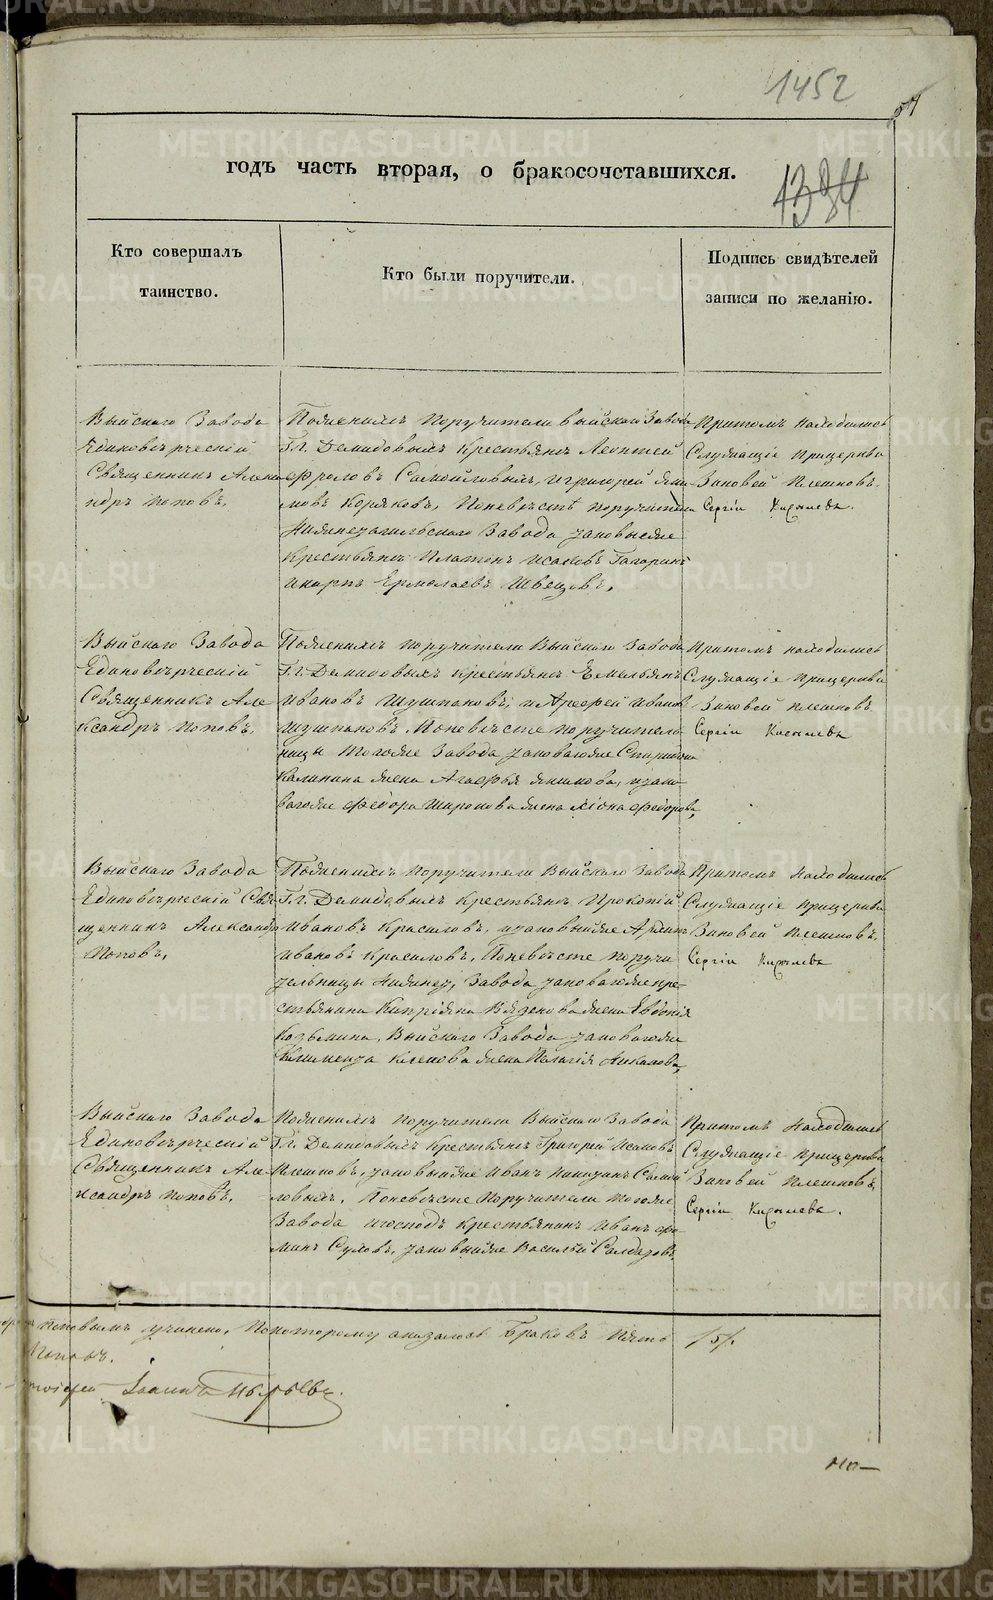 1452
57
годъ часть вторая, о бракосочетавшихся.
1394
Кто совершалъ
таинство.
Кто были поручители.
Подпись свидѣтелей
записи по желанію.
Выйскаго Завода
Единовѣрческій
Священникъ Алекса
ндръ Поповъ.
Поженихѣ Поручители Выйскаго Завода
Гг. Демидовыхъ Крестьянѣ Леонтей
Фроловъ Самойловыхъ, Игригорей
Коряковъ, Поневѣстѣ поручители
Нижнетагильского Завода заповысяе
Крестьянѣ Платонъ Исаковъ Гагаринъ
икарпъ Ермолаевъ Швецовъ,
Притомъ находились
Служащіе прицеркви
Зиновей Плешковъ.
Сергіи Киселевъ.
Выйскаго Завода
Единовѣрческій
Священникъ Але
ксандръ Поповъ.
Поженихѣ поручители Выйскаго Завода
Гг. Демидовыхъ крестьянѣ Емельянъ
Ивановъ Шушпановъ, и Арефей Иванов
Шушпановъ, Поневѣсте поручитель
ницы Тогоже Завода заповаготе Спиридона
Калинина жена Агафья
ваготе Федора Широкова жена Федорова,
Притомъ находились
Служащіе прицеркви
Зиновей Плешковъ
Сергіи Киселевъ
Выйскаго Завода
Единовѣрческій Свя
щенникъ Александр
Поповъ,
Поженихѣ Поручители Выйскаго Завода
Гг. Демидовыхъ крестьянѣ Прокопій
Ивановъ Красиловъ, изаповыйже
Ивановъ Красиловъ, Поневѣсте поручи
тельницы Нижнет. Завода заповаготе кре-
стьянина Кипріяна Вязенова жена Евдокія
Козьмина, Выйскаго Завода заповаготе
Климента Клепова жена Палагія
Притомъ Находились
Служащіе прицеркви
Зиновей Плешковъ,
Сергіи Киселевъ
Выйскаго Завода
Единовѣрческій
Священникъ Але
ксандръ Поповъ.
Поженихѣ поручители Выйскаго Завода
Гг. Демидовыхъ Крестьянѣ Григорей Исаковъ
Плешковъ, заповыйже Иванъ
ловыхъ. Поневѣсте Поручители тогоже
Завода игосподъ крестьянинъ Иванъ
Суловъ, заповыйже Василій
Притомъ Находились
Служащіе прицеркви
Зиновей Плешковъ,
Сергіи Киселевъ.
Поповымъ учинено, Покоторому оказалось Браковъ Пять /5/.
Поповъ.
Іоаннъ Пырьевъ.
METRIKI.GASO-URAL.RU